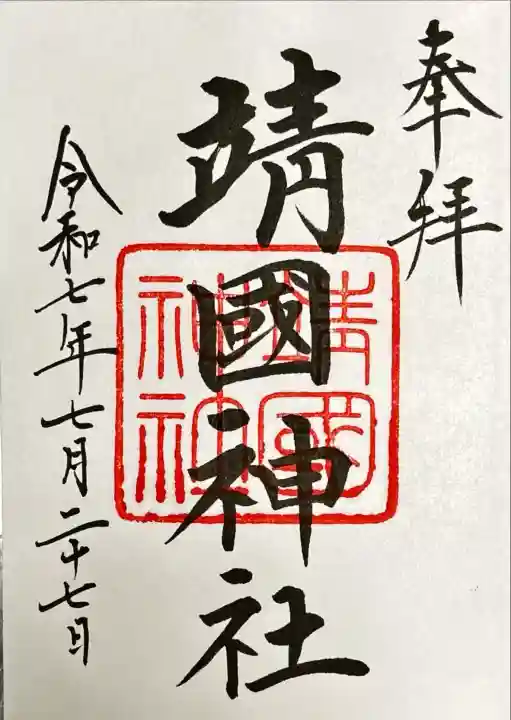 奉拝
靖國神社
靖國
神社
令和七年七月二十七日